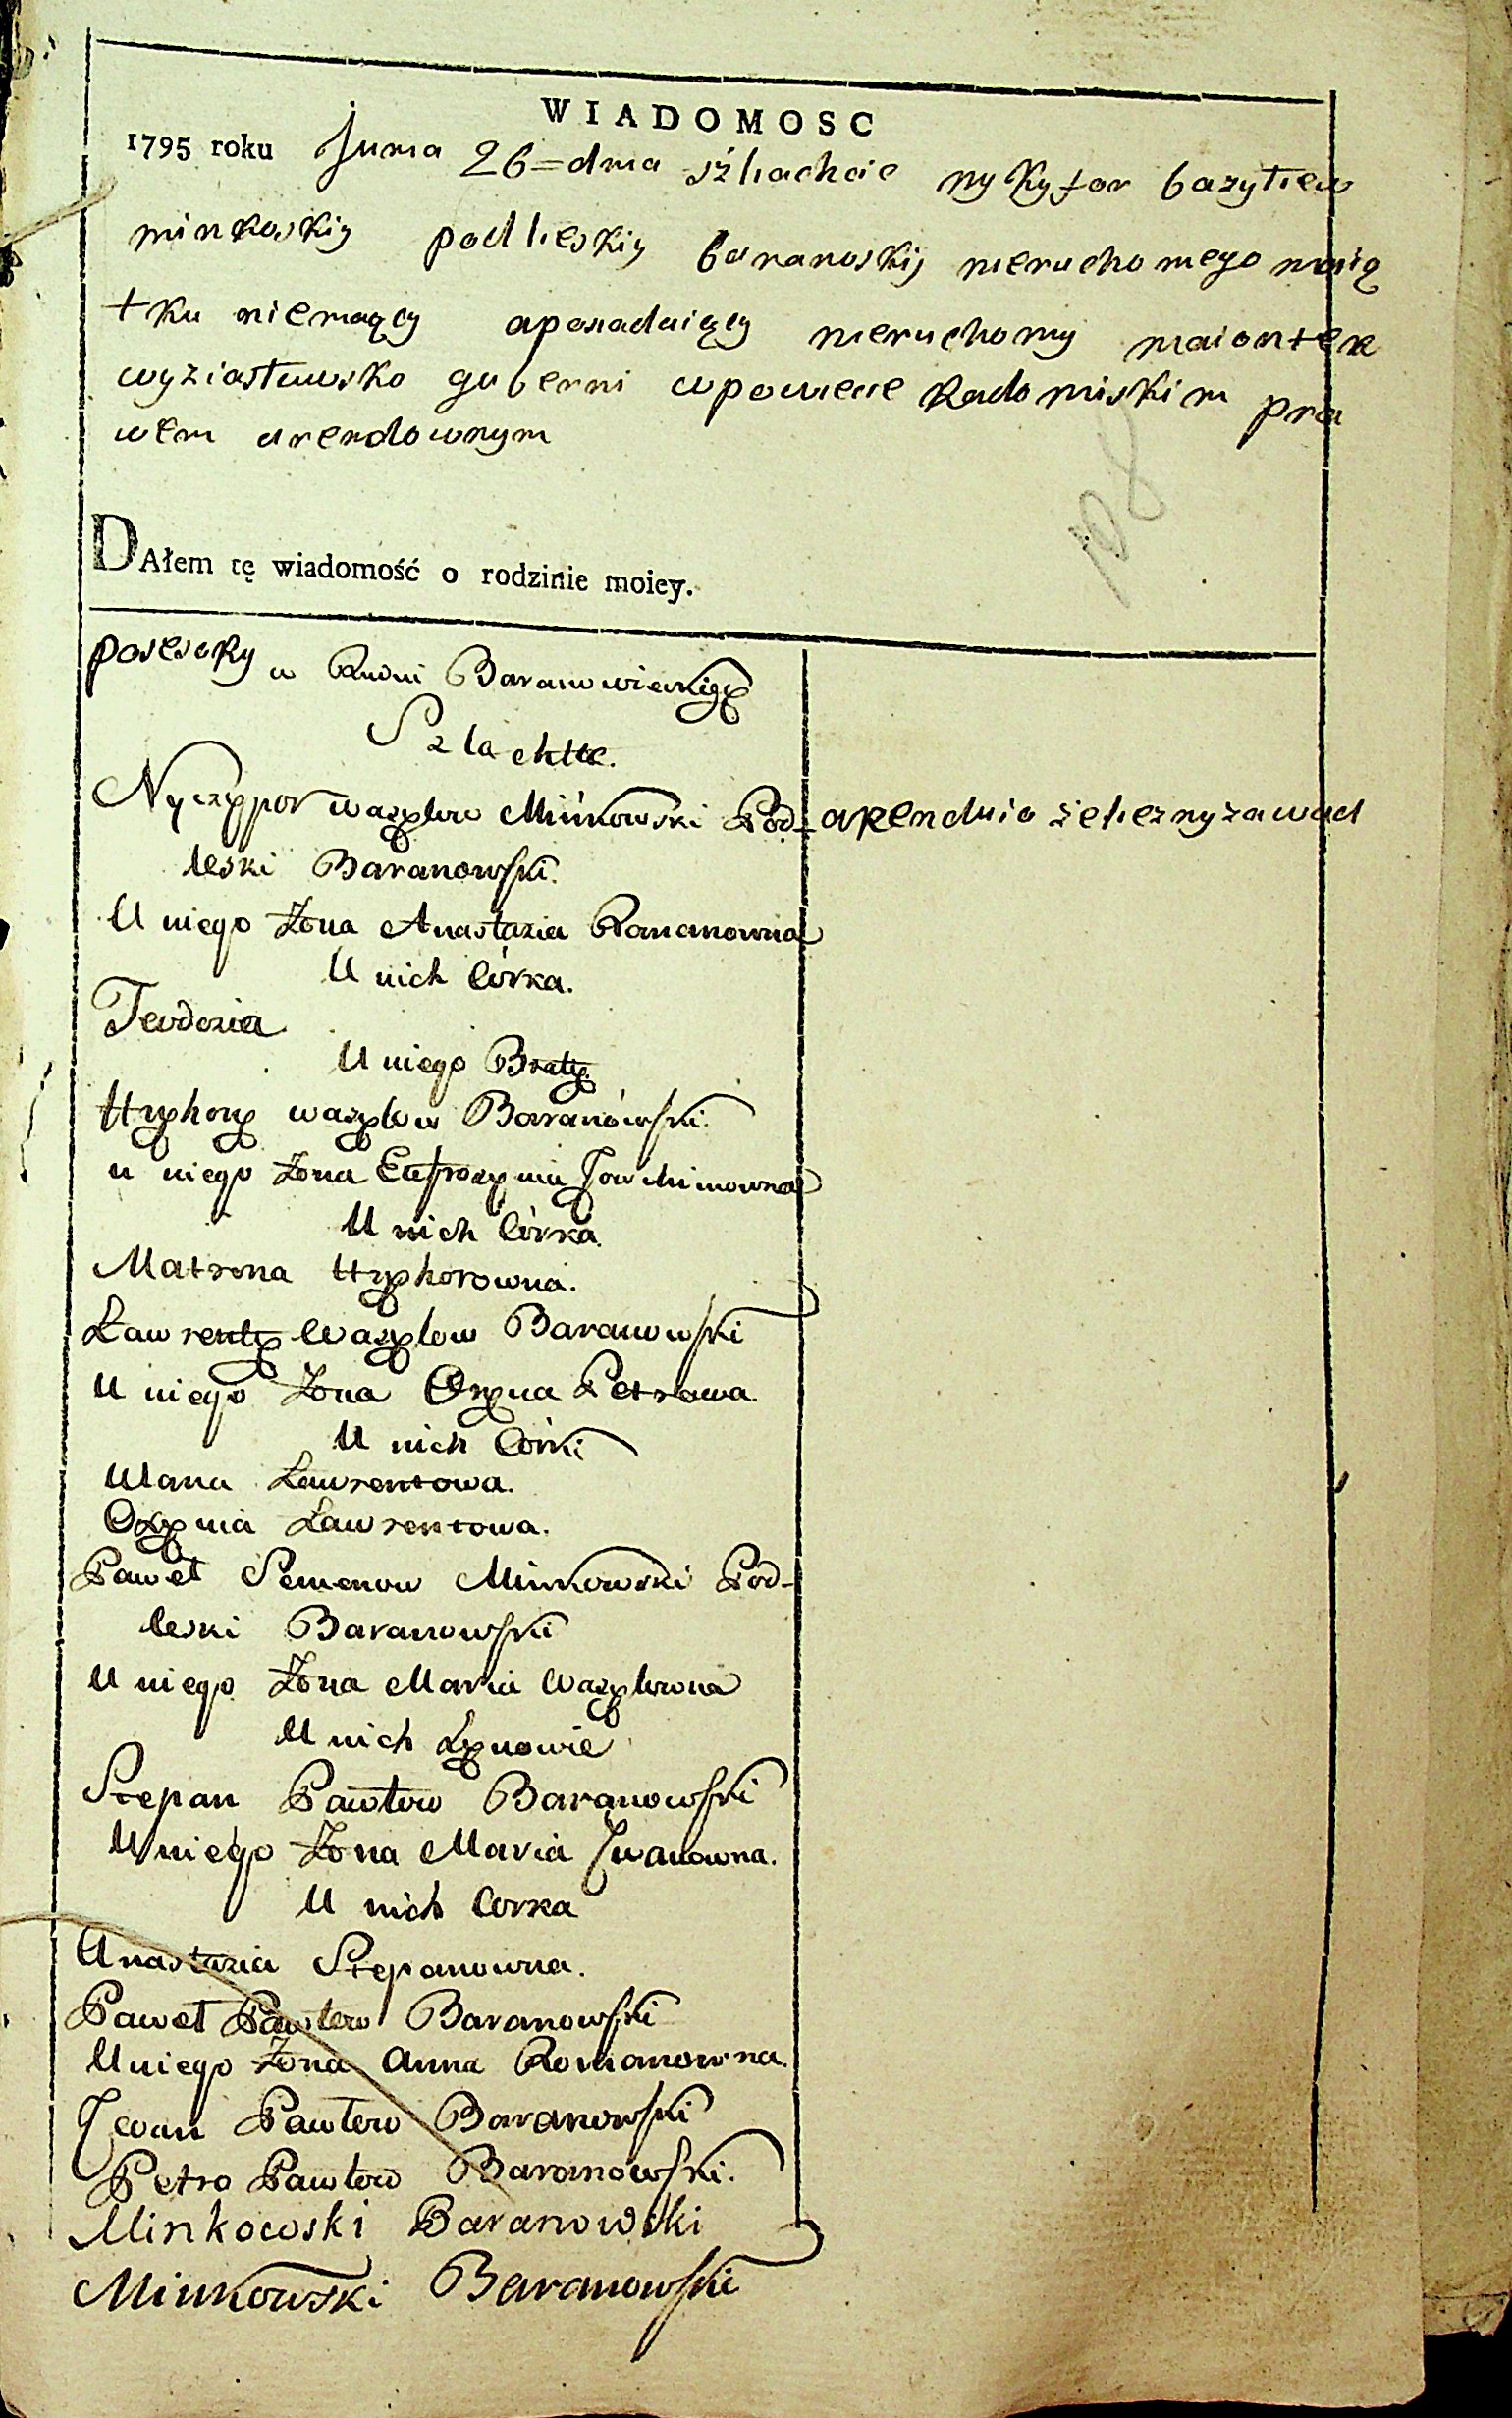 WIADOMOSC
1795 roku Junia 26=dnia śźliachcie nykyfor bazyliew
minkoskiy podlieskiy baranoskiy nieruchomego maią
tku niemaący aposiadaiący nieruchomy maiontek
wyziasławsko guberni wpowiecie Radomiskim pra
wem arendownym
108
DAłem tę wiadomość o rodzinie moiey.
posesoky w Rudni Baranowieckiey
Szlachta.
Nyczypor wasylow Minkowski Pod- arenduio źelieznyzawod
leski Baranowski.
U niego Żona Anastazia Romanowna
U nich Córka.
Teodozia
U niego Braty.
Hryhory wasylow Baranowski.
u niego Żona Eufrozynia Jowchimowna
U nich Córka.
Matrona Hryhorowna.
Ławrenty Wasylow Baranowski
U niego Żona Oryna Petrowa.
U nich Córki
Ulana Ławrentowa.
Oxynia Ławrentowa.
Paweł Semenow Minkowski Pod-
leski Baranowski
U niego Żona Maria Wasylowna
U nich Synowie
Stepan Pawłow Baranowski
U niego Żona Maria Jwanowna.
U nich Corka
Anastazia Stepanowna.
Paweł Pawłow Baranowski
U niego Żona Anna Romanowna.
Jwan Pawłow Baranowski
Petro Pawłow Baranowski.
Minkowski Baranowski
Minkowski Baranowski